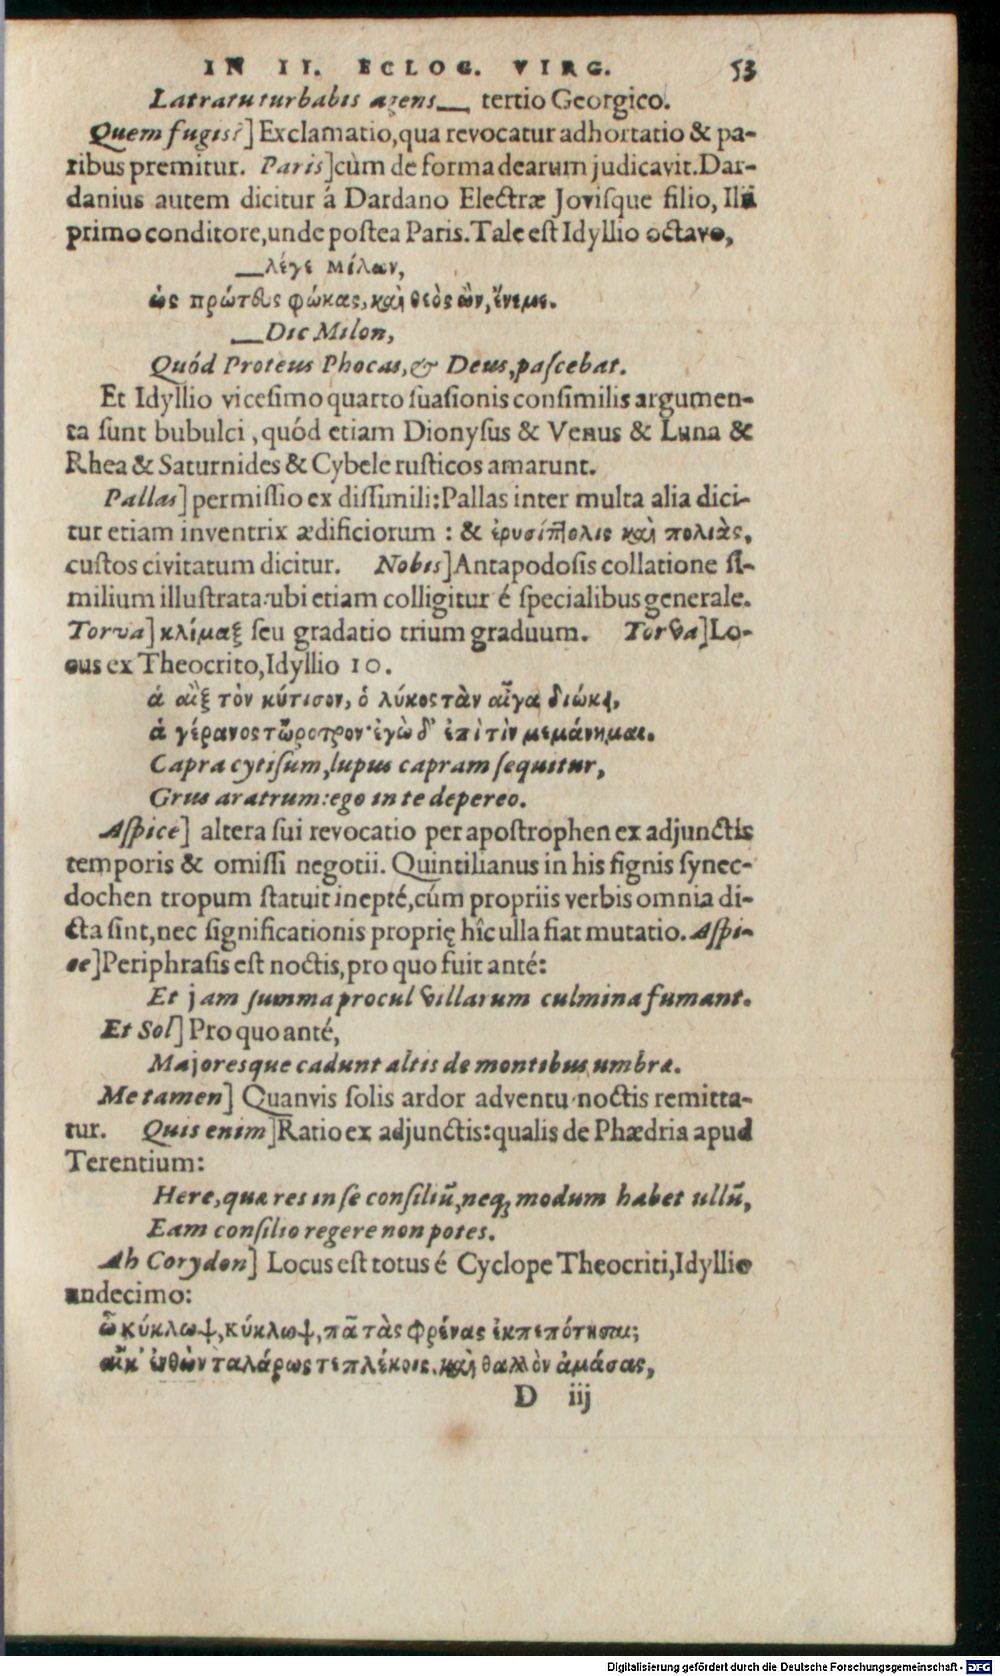 IN II. ECLOG. VIRG. 53
Latratu turbabis agens__ tertio Georgico.
Quem fugis?] Exclamatio, qua revocatur adhortatio & pa-
ribus premitur. Paris] cùm de forma dearum judicavit. Dar-
danius autem dicitur á Dardano Electræ Joviſque filio, Ilii
primo conditore, unde poſtea Paris. Tale eſt Idyllio octavo,
__λέγε Μίλων,
ὡς πρώτευς φώκας, καὶ θεὸς ὢν, ἔνεμε.
__Dic Milon,
Quód Proteus Phocas, & Deus, paſcebat.
Et Idyllio viceſimo quarto ſuaſionis conſimilis argumen-
ta ſunt bubulci, quód etiam Dionyſus & Venus & Luna &
Rhea & Saturnides & Cybele ruſticos amarunt.
Pallas] permiſſio ex diſſimili: Pallas inter multa alia dici-
tur etiam inventrix ædificiorum : & ἐρυσίπτολις καὶ πολιὰς,
cuſtos civitatum dicitur. Nobis] Antapodoſis collatione ſi-
milium illuſtrata: ubi etiam colligitur é ſpecialibus generale.
Torva] κλίμαξ ſeu gradatio trium graduum. Torva] Lo-
cus ex Theocrito, Idyllio 10.
ἁ αἲξ τὸν κύτισον, ὁ λύκος τὰν αἶγα διώκει,
ἁ γέρανος τὦροτρον· ἐγὼ δ' ἐπὶ τὶν μεμάνημαι.
Capra cytiſum, lupus capram ſequitur,
Grus aratrum: ego in te depereo.
Aſpice] altera ſui revocatio per apoſtrophen ex adjunctis
temporis & omiſſi negotii. Quintilianus in his ſignis ſynec-
dochen tropum ſtatuit inepté, cúm propriis verbis omnia di-
cta ſint, nec ſignificationis proprię hîc ulla fiat mutatio. Aſpi-
ce] Periphraſis eſt noctis, pro quo fuit anté:
Et jam ſumma procul villarum culmina fumant.
Et Sol] Pro quo anté,
Majoresque cadunt altis de montibus umbræ.
Me tamen] Quanvis ſolis ardor adventu noctis remitta-
tur. Quis enim] Ratio ex adjunctis: qualis de Phædria apud
Terentium:
Here, quæ res in ſe conſiliũ, neq; modum habet ullũ,
Eam conſilio regere non potes.
Ah Corydon] Locus eſt totus é Cyclope Theocriti, Idyllio
undecimo:
ὦ κύκλωψ, κύκλωψ, πᾶ τὰς φρένας ἐκπεπότησαι;
αἴκ' ἐνθὼν ταλάρως τε πλέκοις. καὶ θαλλὸν ἀμάσας,
D iij
Digitalisierung gefördert durch die Deutsche Forschungsgemeinschaft - DFG